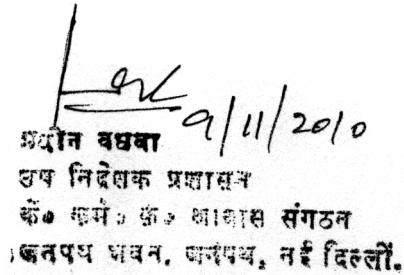 9/11/2010
प्रवीन वधवा
उप निदेशक प्रशासन
कें० कर्म० क० आवास संगठन
जनपथ भवन, जनपथ, नई दिल्ली.